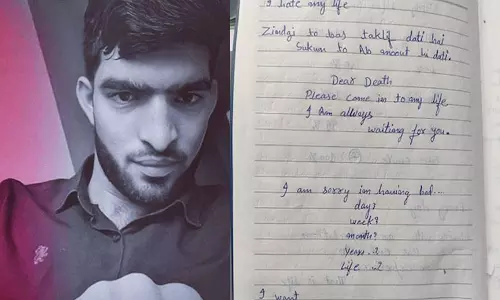 I hate my life
Zindgi to bas taklif dati hai
Sukun to Ab anout hi dati.
Dear Death
Please come in to my life
I Am allways
waiting for you.
I am sorry im having bad...
day?
week?
month?
Year..?
Life..?
I want